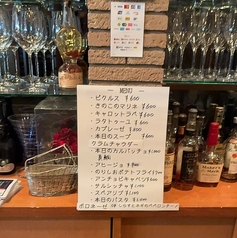 MENU
・ピクルス ¥600
・きのこのマリネ ¥600
・キャロットラペ ¥600
・ラタトゥーユ ¥600
・カプレーゼ ¥800
・本日のスープ ¥600
クラムチャウダー
・本日のカルパッチョ ¥1,000
真鯛
・アヒージョ ¥900
・のりしおポテトフライ
・アンチョビキャベツ
・サルシッチャ
・スペアリブ
・本日のパスタ
ボロネーゼ